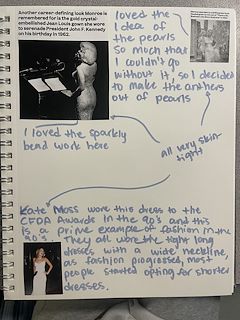 Another career-defining look Monroe is
remembered for is the gold crystal-
embellished Jean Louis gown she wore
to serenade President John F. Kennedy
on his birthday in 1962.
loved the
idea of
the pearls
so much that
I couldn't go
without it, so I decided
to make the anthers
out of pearls
I loved the sparkly
bead work here
all very skin
tight
Kate Moss wore this dress to the
CFDA Awards in the 90's and this
is a prime example of fashion in the
90's. They all wore the tight long
dresses with a wide neckline,
as fashion progressed, most
people started opting for shorter
dresses.